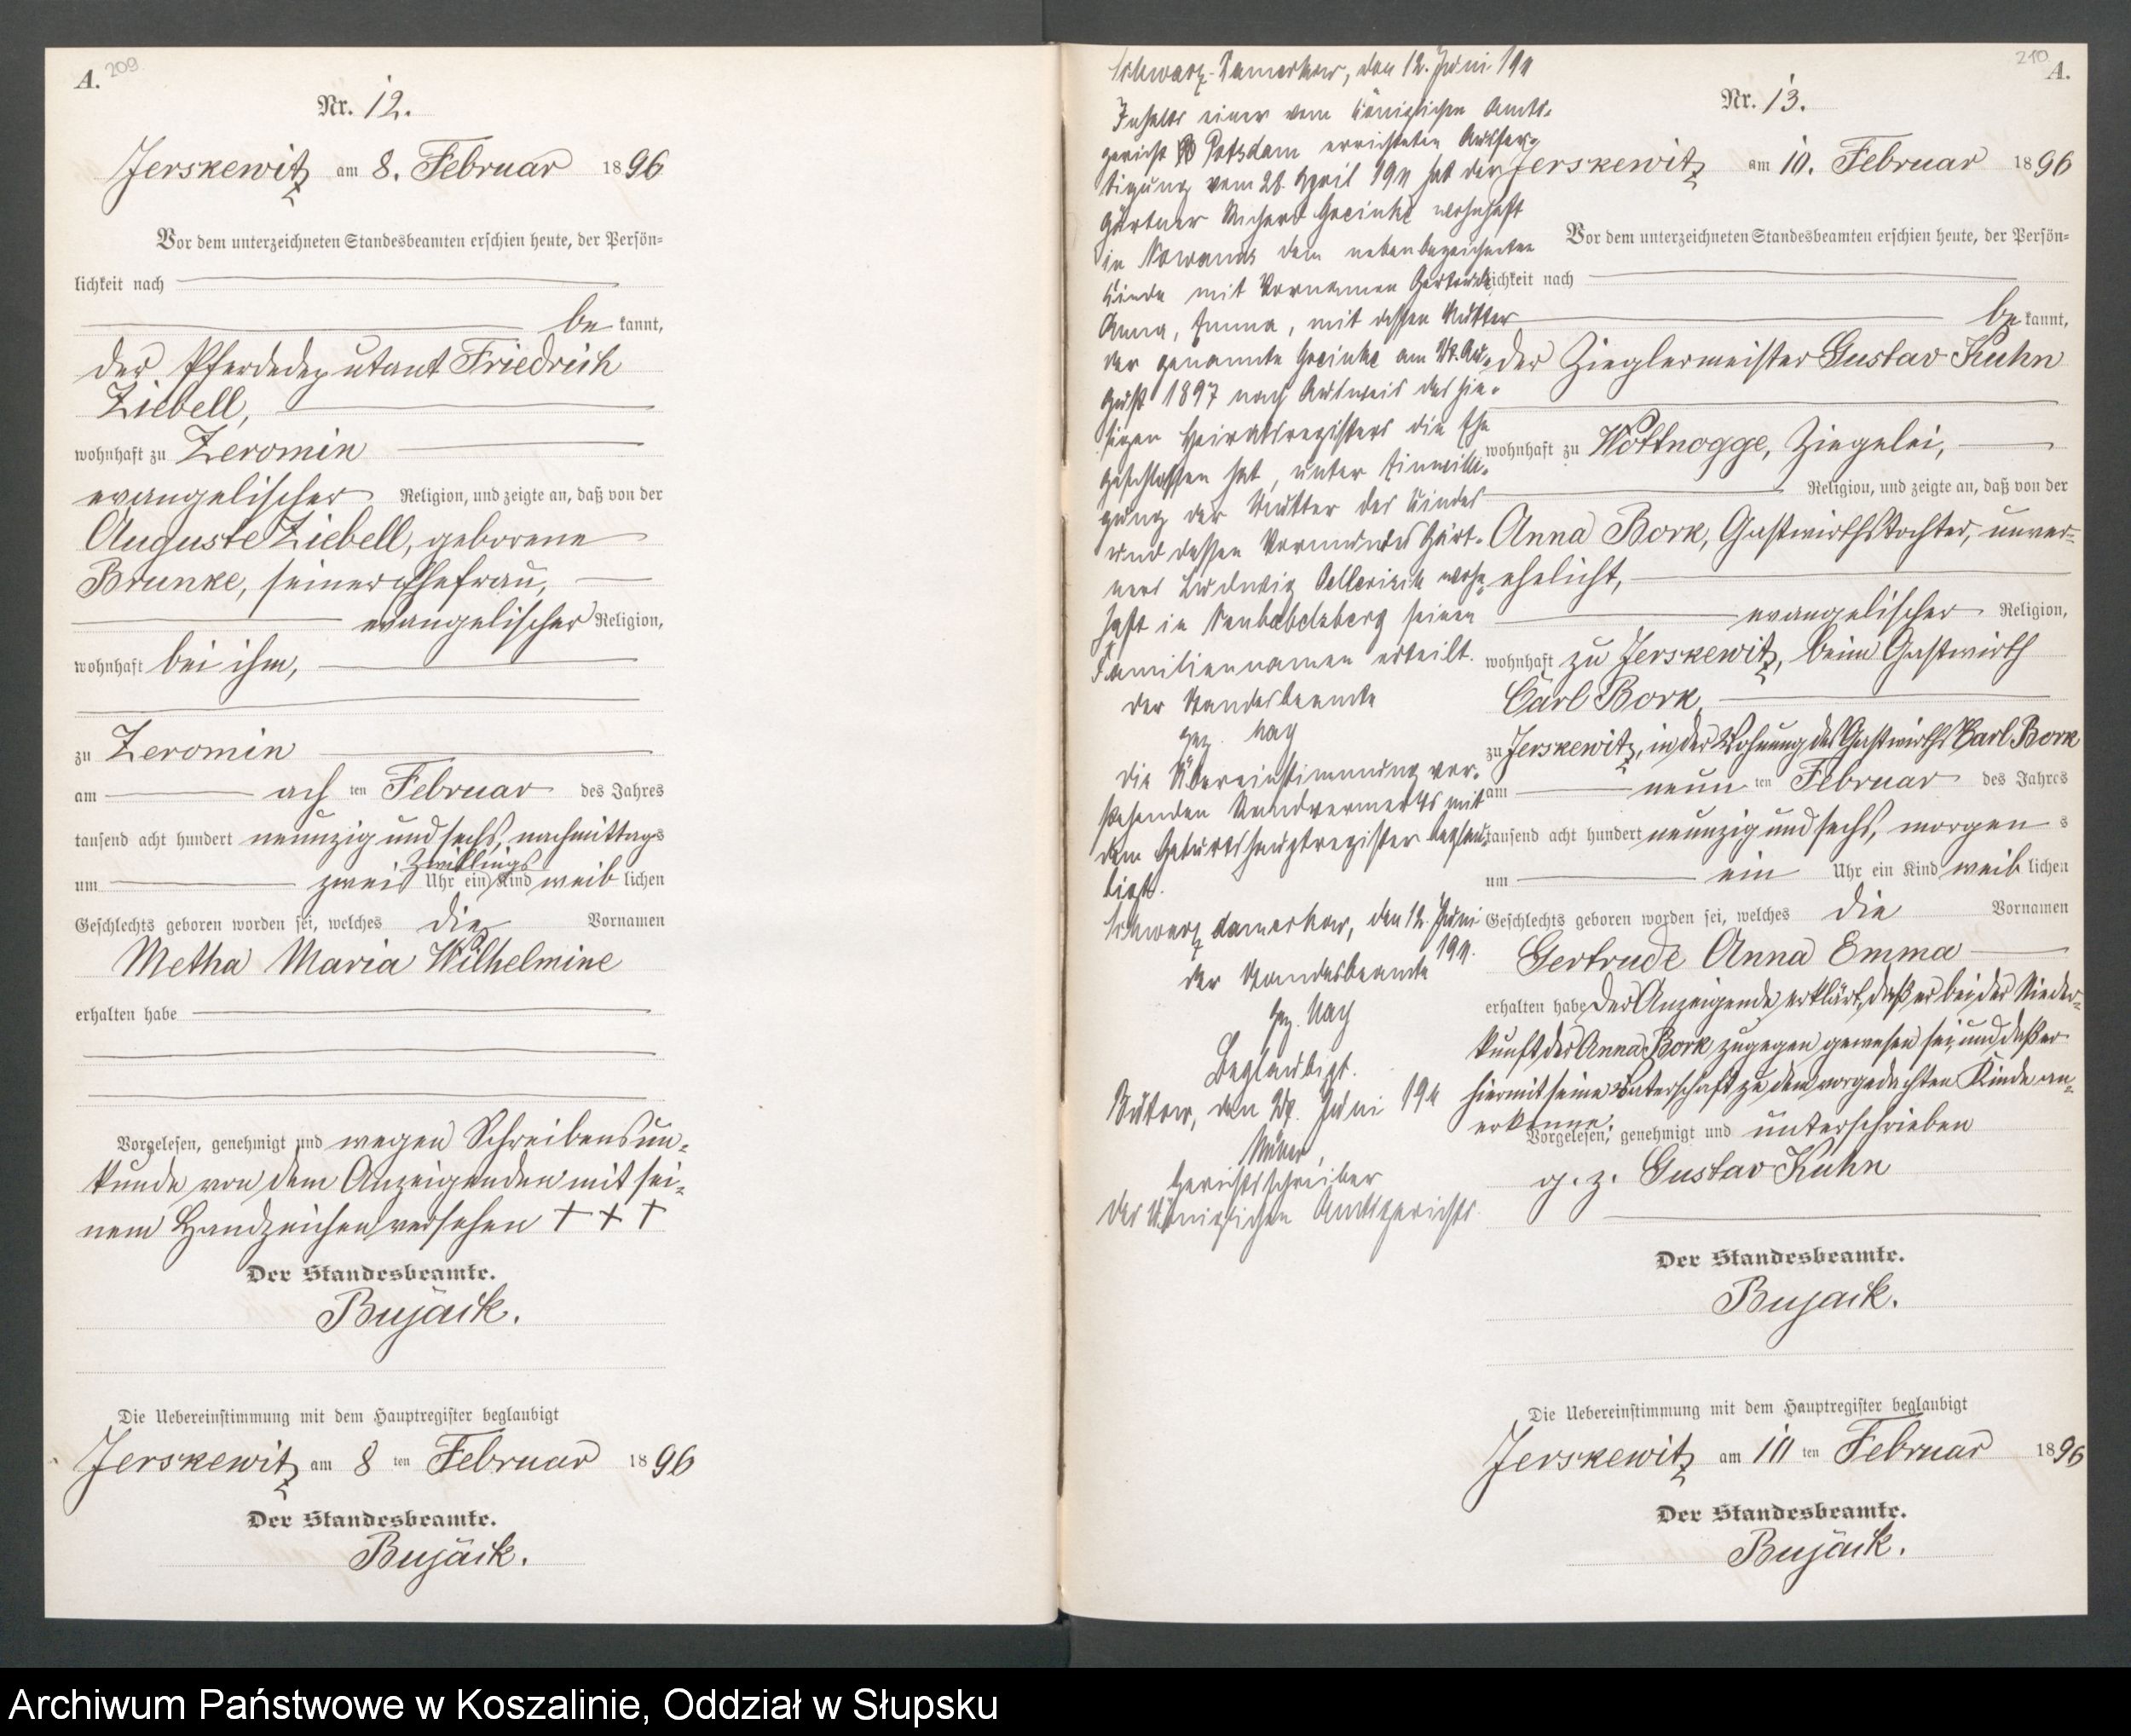 A. 209
Nr. 12.
Jerskewitz am 8. Februar 1896
Vor dem unterzeichneten Standesbeamten erschien heute, der Persön-
lichkeit nach
be kannt,
der Pferdedeputant Friedrich
Ziebell,
wohnhaft zu Zeromin
evangelischer Religion, und zeigte an, daß von der
Auguste Ziebell, geborene
Brunke, seiner Ehefrau,
evangelischer Religion,
wohnhaft bei ihm,
zu Zeromin
am ach ten Februar des Jahres
tausend acht hundert neunzig und sechs, nachmittags
Zwillings
um zwei Uhr ein Kind weib lichen
Geschlechts geboren worden sei, welches die Vornamen
Metha Maria Wilhelmine
erhalten habe
Vorgelesen, genehmigt und wegen Schreibensun-
kunde von dem Anzeigenden mit sei-
nem Handzeichen versehen + + +
Der Standesbeamte.
Bujack.
Die Uebereinstimmung mit dem Hauptregister beglaubigt
Jerskewitz am 8 ten Februar 1896
Der Standesbeamte.
Bujack.
Schwarz-Damerkow, den 12. Juni 1911
Inhalts einer vom Königlichen Amts-
gericht Potsdam errichteten Ausfer-
tigung vom 28. April 1911 hat der
Gärtner Richard wohnhaft
in Nowawes dem nebenbezeichneten
Kinde mit Vornamen Gertrude
Anna, Emma, mit dessen Mutter
der genannte am Au-
gust 1897 nach Ausweis des hie-
sigen Heiratsregisters die Ehe
geschlossen hat, unter Einwilli-
gung der Mutter des Kindes
und dessen Vormundes Gärt-
ners Ludwig wohn-
haft in Neubabelsberg seinen
Familiennamen erteilt.
der Standesbeamte
gez.
die Übereinstimmung vor-
stehenden Randvermerks mit
dem Geburtshauptregister beglau-
bigt.
Schwarz Damerkow, den 12. Juni
1911.
der Standesbeamte
gez.
Beglaubigt.
Bütow, den Juni 1911
Gerichtsschreiber
des Königlichen Amtsgerichts.
210 A.
Nr. 13.
Jerskewitz am 10. Februar 1896
Vor dem unterzeichneten Standesbeamten erschien heute, der Persön-
lichkeit nach
be kannt,
der Zieglermeister Gustav Kuhn
wohnhaft zu Wottnogge, Ziegelei,
Religion, und zeigte an, daß von der
Anna Bork, Gastwirthstochter, unver-
ehelicht,
evangelischer Religion,
wohnhaft zu Jerskewitz, beim Gastwirth
Carl Bork
zu Jerskewitz, in der Wohnung des Gastwirths Carl Bork
am neun ten Februar des Jahres
tausend acht hundert neunzig und sechs, morgen s
um ein Uhr ein Kind weib lichen
Geschlechts geboren worden sei, welches die Vornamen
Gertrude Anna Emma
erhalten habe Der Anzeigende erklärt, daß er bei der Nieder-
kunft der Anna Bork zugegen gewesen sei und daß er
hiermit seine Vaterschaft zu dem vorgedachten Kinde an-
erkenne.
Vorgelesen, genehmigt und unterschrieben
g. z. Gustav Kuhn
Der Standesbeamte.
Bujack.
Die Uebereinstimmung mit dem Hauptregister beglaubigt
Jerskewitz am 10 ten Februar 1896
Der Standesbeamte.
Bujack.
Archiwum Państwowe w Koszalinie, Oddział w Słupsku